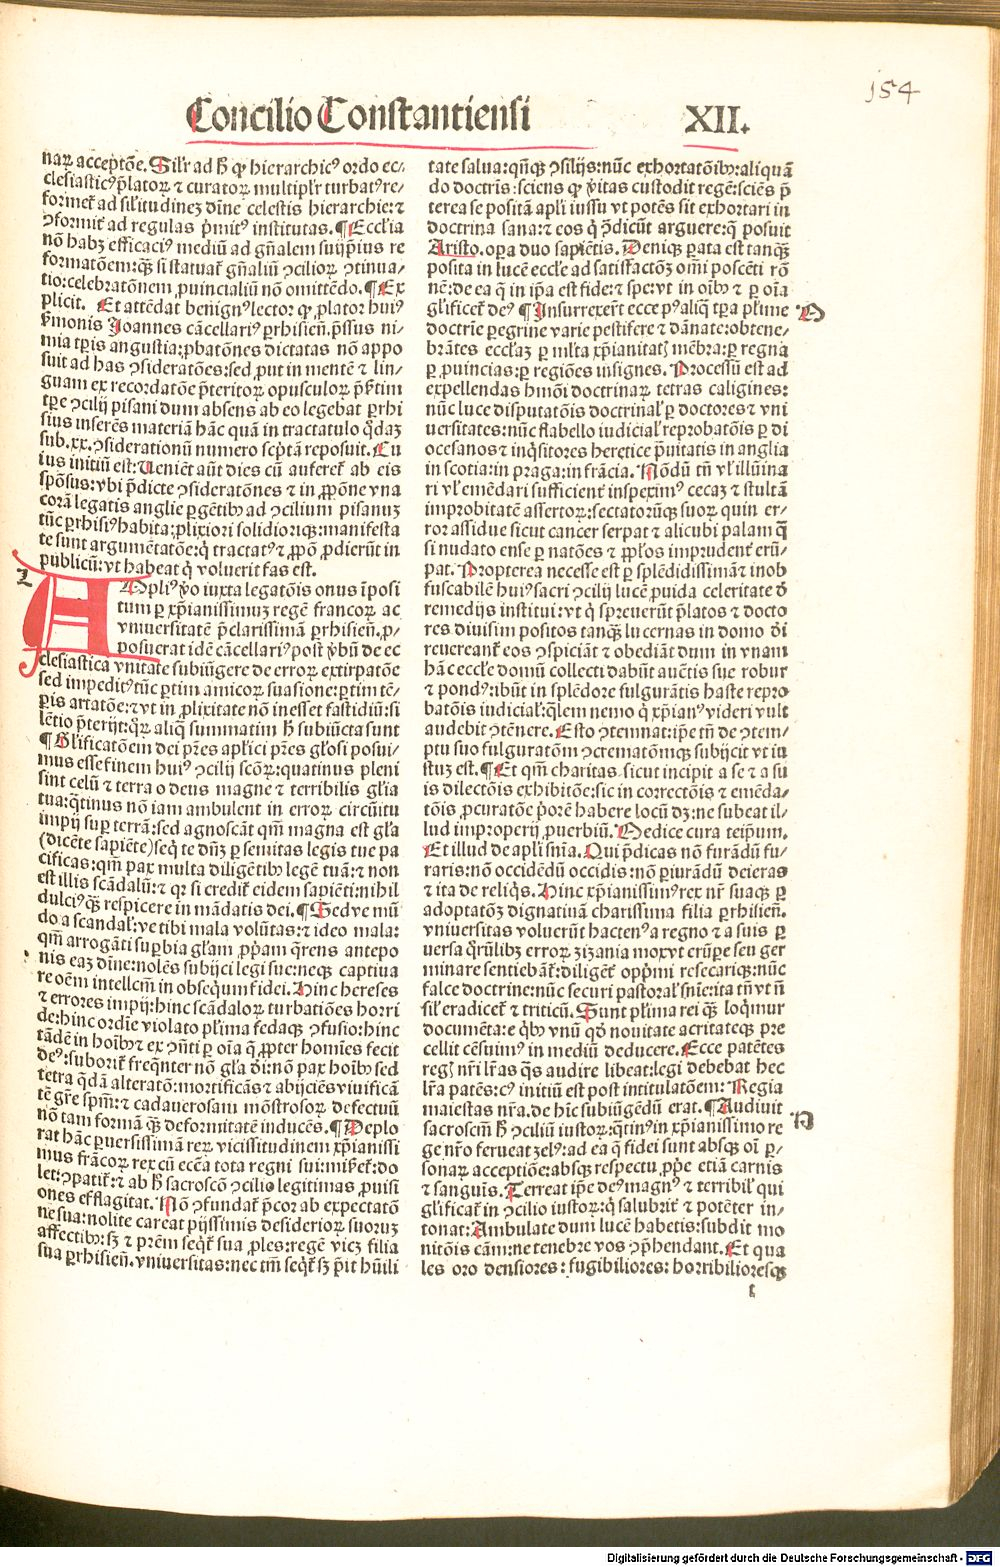 154
Concilio Constantiensi XII.
naꝝ acceptōe. Silr ad hͦ ꝙ hierarchicꝰ ordo ec-
clesiasticꝰ p̄latoꝝ ⁊ curatoꝝ multiplr turbatꝰ re-
formet̄ ad sil'itudinez dn̄e celestis hierarchie: ⁊
ꝯformit̄ ad regulas p̄mitꝰ institutas. ¶ Eccl'ia
nō habꝫ efficaciꝰ mediū ad gn̄alem sui ip̄ius re
formatōem: qꝫ si statuat̄ gn̄aliū ꝯcilioꝝ ꝯtinua-
tio: celebratōnem ꝓuincialiū nō omittēdo. ¶ Ex
plicit. Et attēdat benignꝰ lector ꝙ ꝓlator huiꝰ
ẜmonis Joannes cācellariꝰ ꝑhisieñ. p̄ssus ni-
mia tꝑis angustia: ꝓbatōnes dictatas nō appo
suit ad has ꝯsideratōes: sed ꝓut in mentē ⁊ lin-
guam ex recordatōe p̄teritoꝝ opusculoꝝ p̄s̄tim
tꝑe ꝯcilij pisani dum absens ab eo legebat ꝑrhi
sius inserēs materiā hāc quā in tractatulo q̄daꝫ
sub .xx. ꝯsiderationū numero scp̄tā reposuit. Cu
ius initiū est: Ueniēt aūt dies cū auferet̄ ab eis
spōsus: vbi p̄dicte ꝯsideratōnes ⁊ in ꝓpōne vna
corā legatis anglie ꝑgētibꝰ ad ꝯcilium pisanuꝫ
tūc ꝑrhisiꝰ habita: ꝓlixiori solidioriqꝫ: manifesta
te sunt argumētatōe: q̄ tractatꝰ ⁊ ꝓpō ꝓdierūt in
publicū: vt habeat q̄ voluerit fas est.
L
AMpliꝰ ꝟo iuxta legatōis onus īposi
tum ꝑ xp̄ianissimuꝫ regē francoꝝ ac
vniuersitatē p̄clarissimā ꝑrhisieñ. ꝓ-
posuerat idē cācellariꝰ post ꝟbū de ec
clesiastica vnitate subiūgere de erroꝝ extirpatōe
sed impeditꝰ tūc ꝑtim amicoꝝ suasione: ꝑtim tē-
ꝑis artatōe: ⁊ vt in ꝓlixitate nō inesset fastidiū: si
lētio p̄terijt: qͣꝝ aliq̄ summatim hͦ subiūcta sunt
¶ Gl'ificatōem dei pr̄es apl'ici pr̄es gl'osi posui-
mus esse finem huiꝰ ꝯcilij scōꝝ: quatinus pleni
sint celū ⁊ terra o deus magne ⁊ terribilis gl'ia
tua: q̄tinus nō iam ambulent in erroꝝ circūitu
impij suꝑ terrā: sed agnoscāt qm̄ magna est gl'a
(dicēte sapiēte) seq̄ te dn̄ꝫ ꝑ semitas legis tue pa
cificas: qm̄ pax multa diligētibꝰ legē tuā: ⁊ non
est illis scādalū: ⁊ qꝛ si credit̄ eidem sapiēti: nihil
dulciꝰ qꝫ respicere in mādatis dei. ¶ Sed ve mū
do a scandal': ve tibi mala volūtas: ⁊ ideo mala:
qm̄ arrogāti suꝑbia gl'am ꝓpᵃm q̄rens antepo
nis eaꝫ dn̄e: nolēs subijci legi sue: neqꝫ captiua
re oēm intellcm̄ in obseqͥum fidei. Hinc hereses
⁊ errores impij: hinc scādaloꝝ turbatiōes horri
de: hinc ordīe violato pl'ima fedaqꝫ ꝯfusio: hinc
tādē in hoībꝰ ⁊ ex ꝯn̄ti ꝑ oīa q̄ ꝓpter homīes fecit
deꝰ: suborit̄ freqn̄ter nō gl'a di: nō pax hoībꝰ sed
tetra q̄dā alteratō: mortificās ⁊ abijciēs viuificā
tē gr̄e spm̄: ⁊ cadauerosam mōstrosoꝝ defectuū
nō tam formam qꝫ deformitatē inducēs. ¶ Deplo
rat hāc ꝑuersissimā reꝝ vicissitudinem xp̄ianissi
mus frācoꝝ rex cū eccᵃ tota regni sui: mis̄ret̄: do
let: ꝯpatit̄: ⁊ ab hͦ sacroscō ꝯcilio legitimas ꝓuisi
ones efflagitat. Nō ꝯfundat̄ p̄cor ab expectatō
ne sua: nolite careat pijssimis desiderioꝝ suoruꝫ
affectibꝰ: sꝫ ⁊ pr̄em seqͥt̄ sua ꝓles: regē vicꝫ filia
sua ꝑrhisieñ. vniuersitas: nec tm̄ seqͥt̄ sꝫ p̄it hūili
tate salua: qn̄qꝫ ꝯsilijs: nūc exhortatōibꝰ: aliquā
do doctrīs: sciens ꝙ ꝟitas custodit regē: sciēs p̄
terea se positā apl'i iussu vt potēs sit exhortari in
doctrina sana: ⁊ eos q̄ ꝯ̄dicūt arguere: q̄ posuit
Aristo. oꝑa duo sapiētis. Deniqꝫ ꝑata est tanqꝫ
posita in lucē eccl'e ad satisfactōꝫ om̄i poscēti rō
nē: de ea q̄ in ip̄a est fide: ⁊ spe: vt in oībꝰ ⁊ ꝑ oīa
gl'ificet̄ deꝰ ¶ Insurrexer̄t ecce pꝰ aliq̄ tꝑa pl'ime M
doctrīe ꝑegrine varie pestifere ⁊ dānate: obtene-
brātes eccl'iaꝫ ꝑ ml'ta xp̄ianitat̄ mēbra: ꝑ regna
ꝑ ꝓuincias: ꝑ regiōes insignes. Processū est ad
expellendas hmōi doctrinaꝝ tetras caligines:
nūc luce disputatōis doctrinal' ꝑ doctores ⁊ vni
uersitates: nūc flabello iudicial' reprobatōis ꝑ di
ocesanos ⁊ inqͥsitores heretice prauitatis in anglia
in scotia: in praga: in frācia. Nōdū tn̄ vl' illūina
ri vl' emēdari sufficient̄ inspeximꝰ cecaꝫ ⁊ stultā
improbitatē assertoꝝ: sectatorūqꝫ suoꝝ quin er-
ror assidue sicut cancer serpat ⁊ alicubi palam q̄
si nudato ense ꝑ natōes ⁊ ppl'os imprudent̄ erū-
pat. Propterea necesse est ꝑ splēdidissimā ⁊ inob
fuscabilē huiꝰ sacri ꝯcilij lucē ꝓuida celeritate ð
remedijs institui: vt q̄ spreuerūt p̄latos ⁊ docto
res diuisim positos tanqꝫ lucernas in domo dn̄i
reuereant̄ eos ꝯspiciāt ⁊ obediāt dum in vnam
hāc eccl'e domū collecti dabūt auētis sue robur
⁊ pondꝰ: ibūt in splēdore fulgurātis haste repro
batōis iudicial': q̄lem nemo q̄ xp̄ianꝰ videri vult
audebit ꝯtēnere. Esto ꝯtemnat: ip̄e tn̄ de ꝯtem-
ptu suo fulguratōm ꝯcrematōmqꝫ subijcit vt iu
stuꝫ est. ¶ Et qm̄ charitas sicut incipit a se ⁊ a su
is dilectōis exhibitōe: sic in correctōis ⁊ emēda-
tōis ꝓcuratōe p̄orē habere locū dꝫ: ne subeat il-
lud improperij ꝓuerbiū. Medice cura teip̄um.
Et illud de apl'i sn̄ia. Qui p̄dicas nō furādū fu-
raris: nō occidēdū occidis: nō ꝑiurādū deieras
⁊ ita de reliqͥs. Hinc xp̄ianissimꝰ rex nr̄ suaqꝫ ꝑ
adoptatōꝫ dignatiuā charissima filia ꝑrhisieñ.
vniuersitas voluerūt hactenꝰ a regno ⁊ a suis ꝑ
uersa qͦrūlibꝫ erroꝝ zizania mox vt erūꝑe seu ger
minare sentiebāt̄: diligēt̄ opp̄mi resecariqꝫ: nūc
falce doctrine: nūc securi pastoral' sn̄ie: ita tn̄ vt n̄
sil' eradicet̄ ⁊ triticū. Sunt pl'ima rei qꝫ loqͥmur
documēta: e qͥbꝰ vnū qð nouitate acritateqꝫ pre
cellit cēsuimꝰ in mediū deducere. Ecce patētes
reḡ nr̄i lr̄as q̄s audire libeat: legi debebat hec
lr̄a patēs: cꝰ initiū est post intitulatōem: Regia
maiestas nr̄a. de hīc subiūgēdū erat. ¶ Audiuit N
sacroscm̄ hͦ ꝯciliū iustoꝝ: q̄tinꝰ in xp̄ianissimo re
ge nr̄o ferueat zelꝰ: ad ea q̄ fidei sunt absqꝫ oī ꝑ-
sonaꝝ acceptiōe: absqꝫ respectu ꝓpᵉ etiā carnis
⁊ sanguīs. Terreat ip̄e deꝰ magnꝰ ⁊ terribil' qui
gl'ificat̄ in ꝯcilio iustoꝝ: q̄ salubrit̄ ⁊ potēter in-
tonat: Ambulate dum lucē habetis: subdit mo
nitōis cām: ne tenebre vos ꝯp̄hendant. Et qua
les oro densiores: fugibiliores: horribilioresqꝫ
t
Digitalisierung gefördert durch die Deutsche Forschungsgemeinschaft - DFG